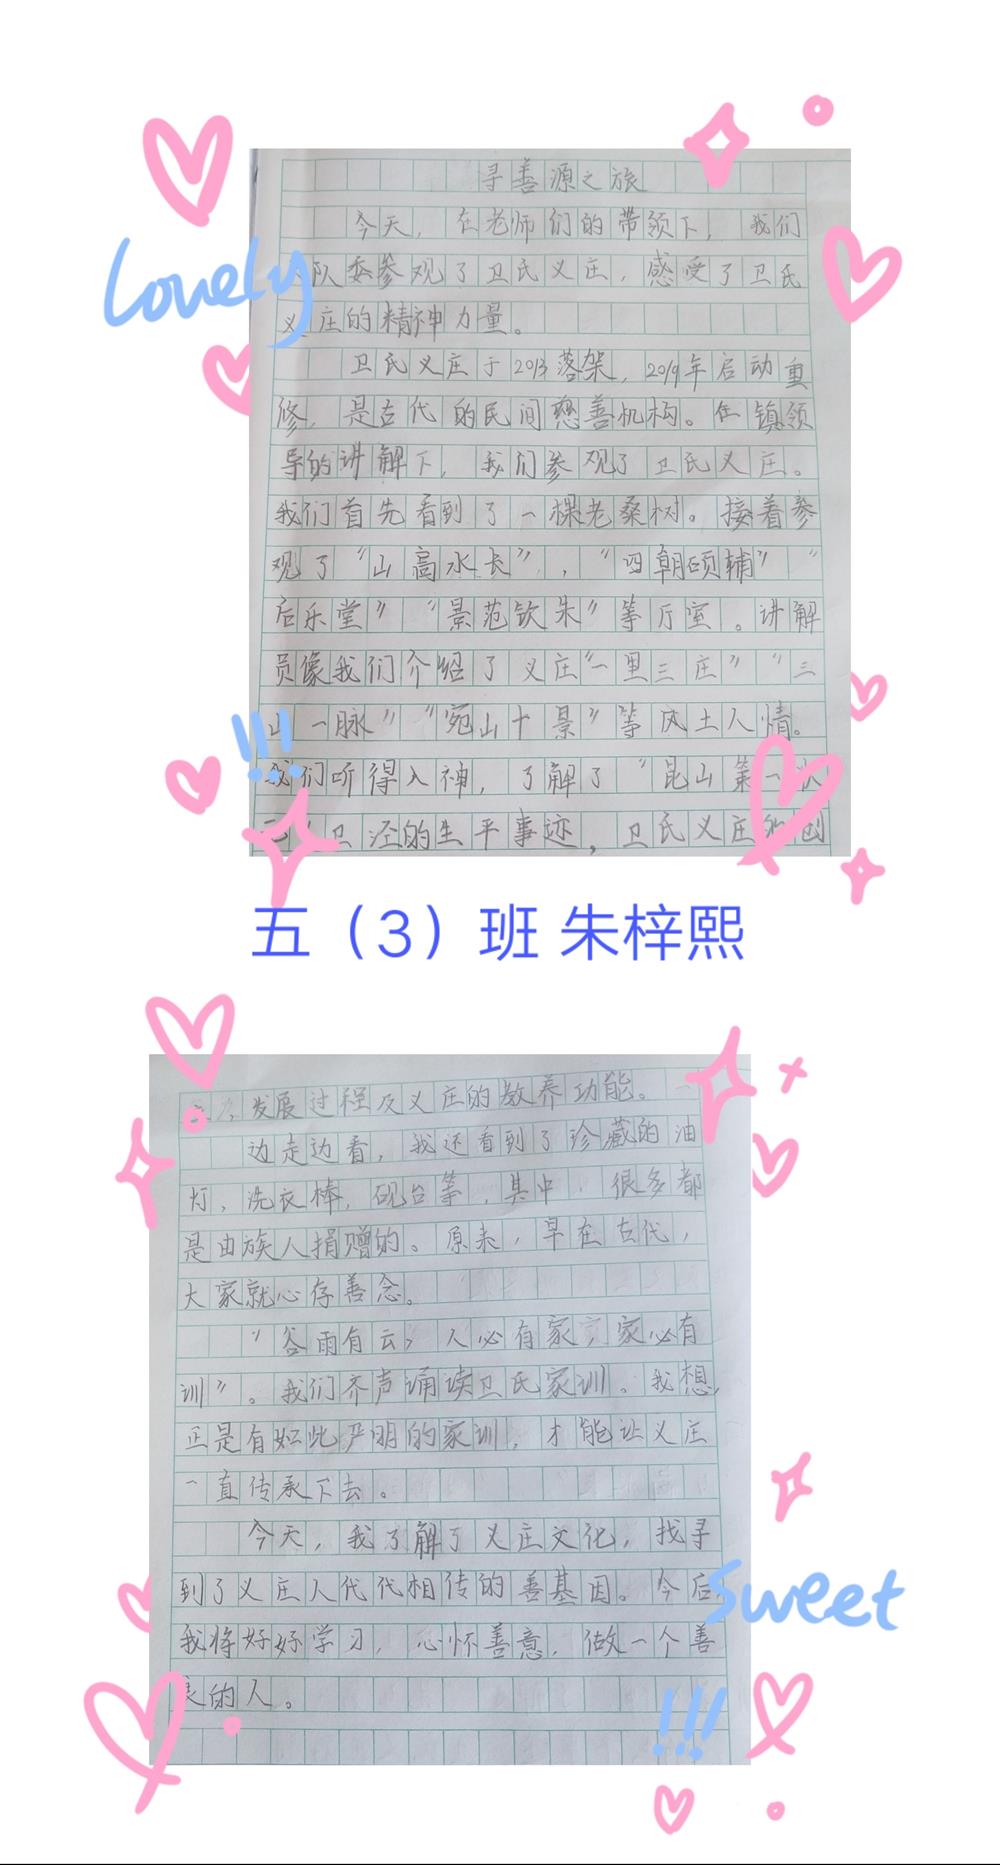 寻善源之旅
今天，在老师们的带领下，我们
Lovely
队委参观了卫氏义庄，感受了卫氏
义庄的精神力量。
卫氏义庄于2013落架，2019年启动重
修，是古代的民间慈善机构。在镇领
导的讲解下，我们参观了卫氏义庄。
我们首先看到了一棵老桑树。接着参
观了“山高水长”，“四朝硕辅”“
后乐堂”“景范钦朱”等厅室。讲解
员像我们介绍了义庄“一里三庄”“三
山一脉”“宛山十景”等风土人情。
!!!
我们听得入神，了解了“昆山第一状
卫泾的生平事迹，卫氏义庄的创
五（3）班 朱梓熙
发展过程及义庄的教养功能。
边走边看，我还看到了珍藏的油
灯，洗衣棒，砚台等，其中，很多都
是由族人捐赠的。原来，早在古代，
大家就心存善念。
“谷雨有云，人必有家，家必有
训”。我们齐声诵读卫氏家训。我想，
正是有如此严明的家训，才能让义庄
一直传承下去。
今天，我了解了义庄文化，找寻
到了义庄人代代相传的善基因。今后
sweet
我将好好学习，心怀善意，做一个善
良的人。
!!!